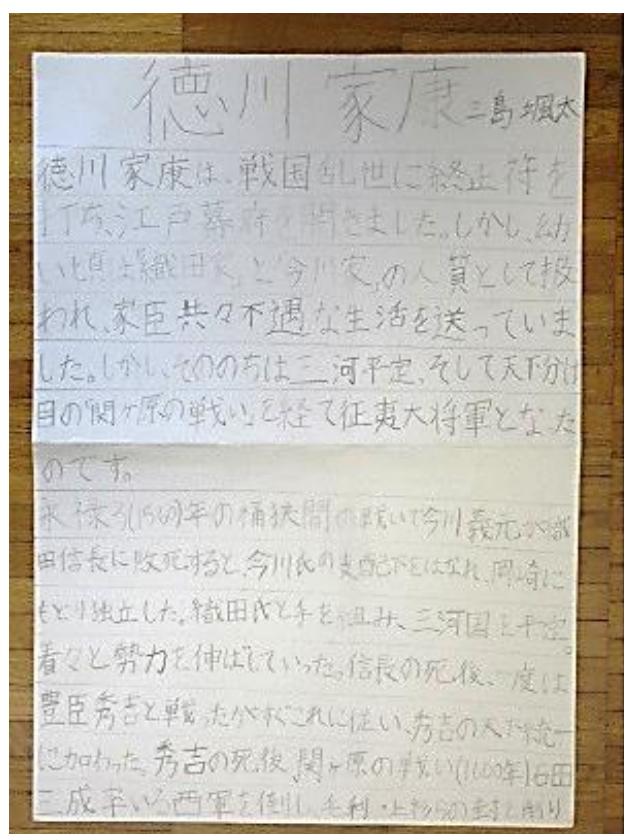 徳川家康 三島颯太
徳川家康は、戦国乱世に終止符を
打ち、江戸幕府を開きました。しかし、幼
い頃は「織田家」と「今川家」の人質として扱
われ、家臣共々不遇な生活を送っていま
した。しかし、そののちは三河平定、そして天下分け
目の「関ヶ原の戦い」を経て征夷大将軍となった
のです。
永禄3(1560)年の桶狭間の戦いで今川義元が織
田信長に敗死すると、今川氏の支配下をはなれ、岡崎に
もどり独立した。織田氏と手を組み、三河国を平定。
着々と勢力を伸ばしていった。信長の死後、一度は
豊臣秀吉と戦ったがすぐこれに従い、秀吉の天下統一
に加わった。秀吉の死後、関ヶ原の戦い(1600年)石田
三成率いる西軍を倒し、毛利・上杉らの封を削り